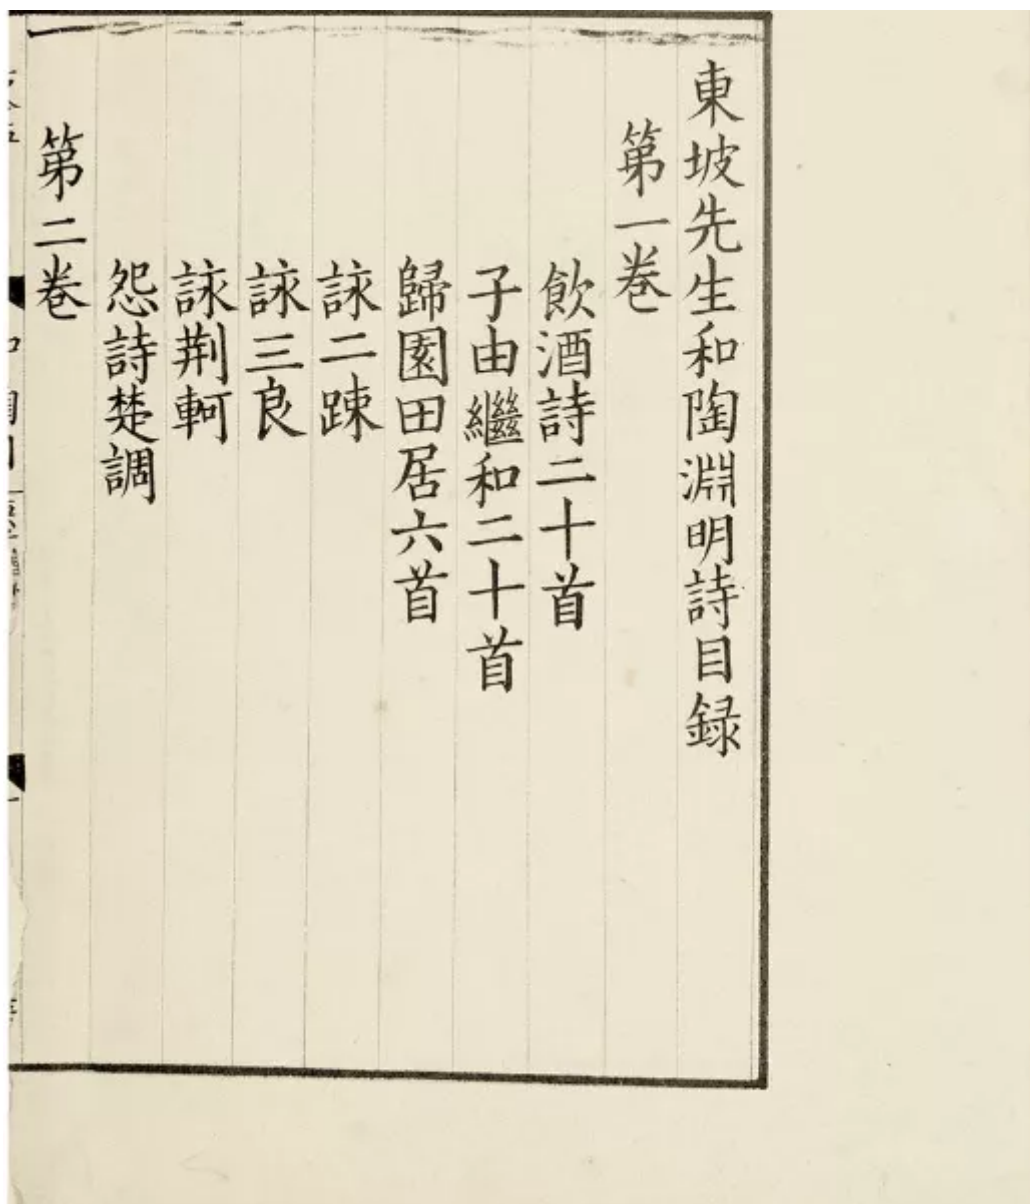 東坡先生和陶淵明詩目録
第一卷
飲酒詩二十首
子由繼和二十首
歸園田居六首
詠二踈
詠三良
詠荆軻
怨詩楚調
第二卷